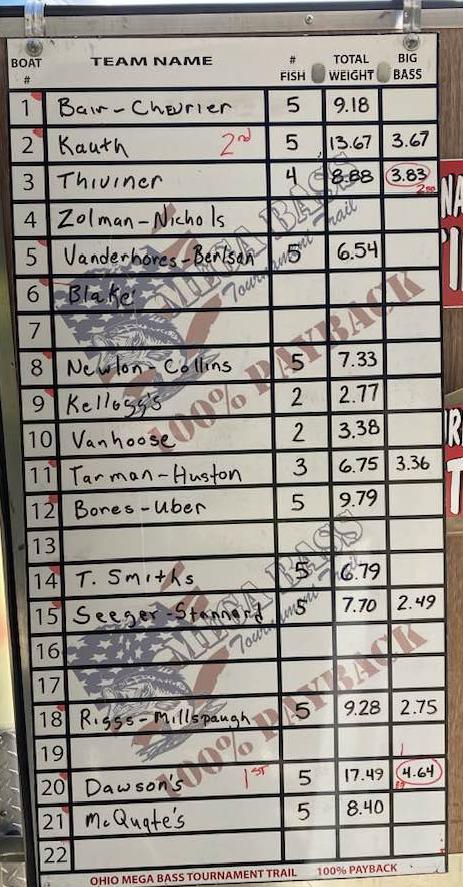 BOAT # TEAM NAME # FISH TOTAL WEIGHT BIG BASS
1 Bair-Chevrier 5 9.18
2 Kauth 2nd 5 13.67 3.67
3 Thiviner 4 8.88 3.83 2nd
4 Zolman-Nichols
5 Vanderhores-Bentsen 5 6.54
6 Blake
7
8 Newlon-Collins 5 7.33
9 Kellogg's 2 2.77
10 Vanhoose 2 3.38
11 Tarman-Huston 3 6.75 3.36
12 Bores-Uber 5 9.79
13
14 T. Smiths 5 6.79
15 Seeger-Stannard 5 7.70 2.49
16
17
18 Riggs-Millspaugh 5 9.28 2.75
19
20 Dawson's 1st 5 17.49 4.64
21 McQuate's 5 8.40
22
MEGA BASS
Tournament Trail
100% PAYBACK
MEGA BASS
Tournament Trail
100% PAYBACK
OHIO MEGA BASS TOURNAMENT TRAIL 100% PAYBACK